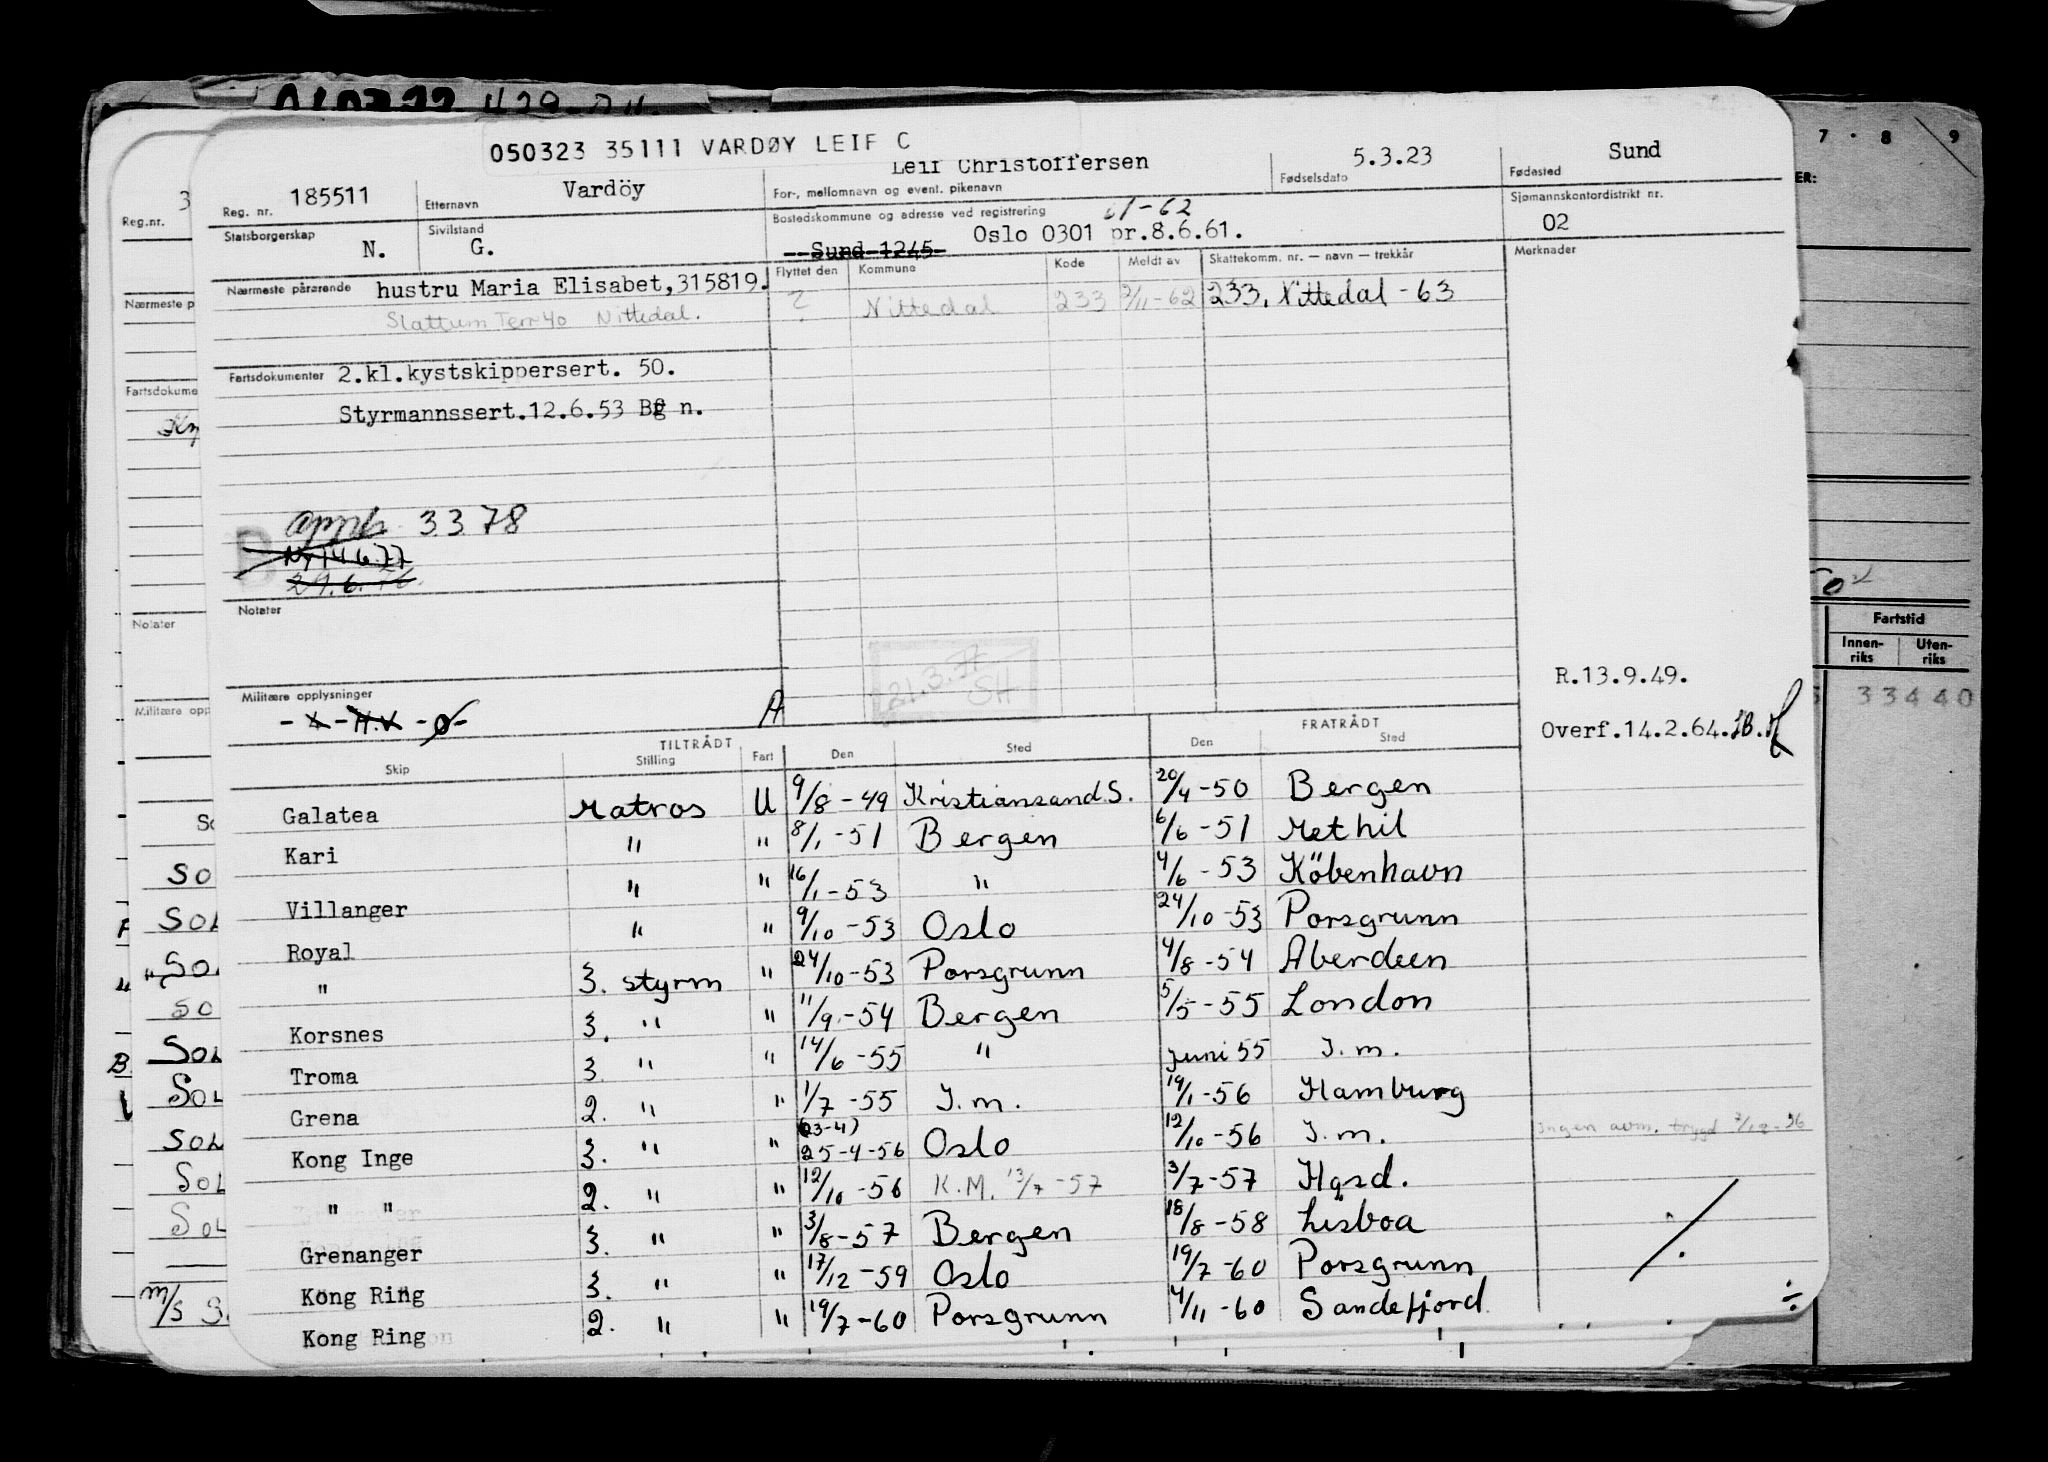 050323 35111 VARDØY LEIF C
Reg. nr. 185511 Etternavn Vardöy For-, mellomnavn og event. pikenavn Leif Christoffersen Fødselsdato 5.3.23 Fødested Sund
Statsborgerskap N. Sivilstand G. Bostedskommune og adresse ved registrering Sund 1245 Oslo 0301 pr.8.6.61. 61-62 Sjømannskontordistrikt nr. 02
Nærmeste pårørende hustru Maria Elisabet,315819. Flyttet den Kommune Kode Meldt av Skattekomm. nr. — navn — trekkår Merknader
Slattum Terr 40 Nittedal. ? Nittedal 233 2/11-62 233, Nittedal -63
Fartsdokumenter 2.kl.kystskippersert. 50.
Styrmannssert.12.6.53 Bg n.
3378
Ny 14.6.77
29.6.76
Notater
21.3.77
SH
R.13.9.49.
Militære opplysninger
A
Overf.14.2.64.
TILTRÅDT FRATRÅDT
Skip Stilling Fart Den Sted Den Sted
Galatea Matros U 9/8-49 Kristiansand S. 20/4-50 Bergen
Kari " " 8/1-51 Bergen 6/6-51 Methil
Villanger " " 16/1-53 " 4/6-53 Köbenhavn
Royal " " 9/10-53 Oslo 24/10-53 Porsgrunn
" 3. styrm " 24/10-53 Porsgrunn 4/8-54 Aberdeen
Korsnes 3. " " 11/9-54 Bergen 5/5-55 London
Troma 3. " " 14/6-55 " Juni 55 I.m.
Grena 2. " " 1/7-55 I.m. 19/1-56 Hamburg
Kong Inge 3. " " (23-4) 25-4-56 Oslo 12/10-56 I.m. Ingen avm. trygd 7/12-56
" " 2. " " 12/10-56 K.M. 13/7-57 3/7-57 Hgsd.
Grenanger 3. " " 3/8-57 Bergen 18/8-58 Lisboa
Kong Ring 3. " " 17/12-59 Oslo 19/7-60 Porsgrunn
Kong Ring 2. " " 19/7-60 Porsgrunn 4/11-60 Sandefjord
Reg.nr. 3
Nærmeste p
Fartsdokume
Notater
Militære opp
SO
SOL
SO
SOL
SOL
SOL
SOL
SOL
m/s S
7 · 8 9
ER:
Fartstid
Innen-riks Uten-riks
33440